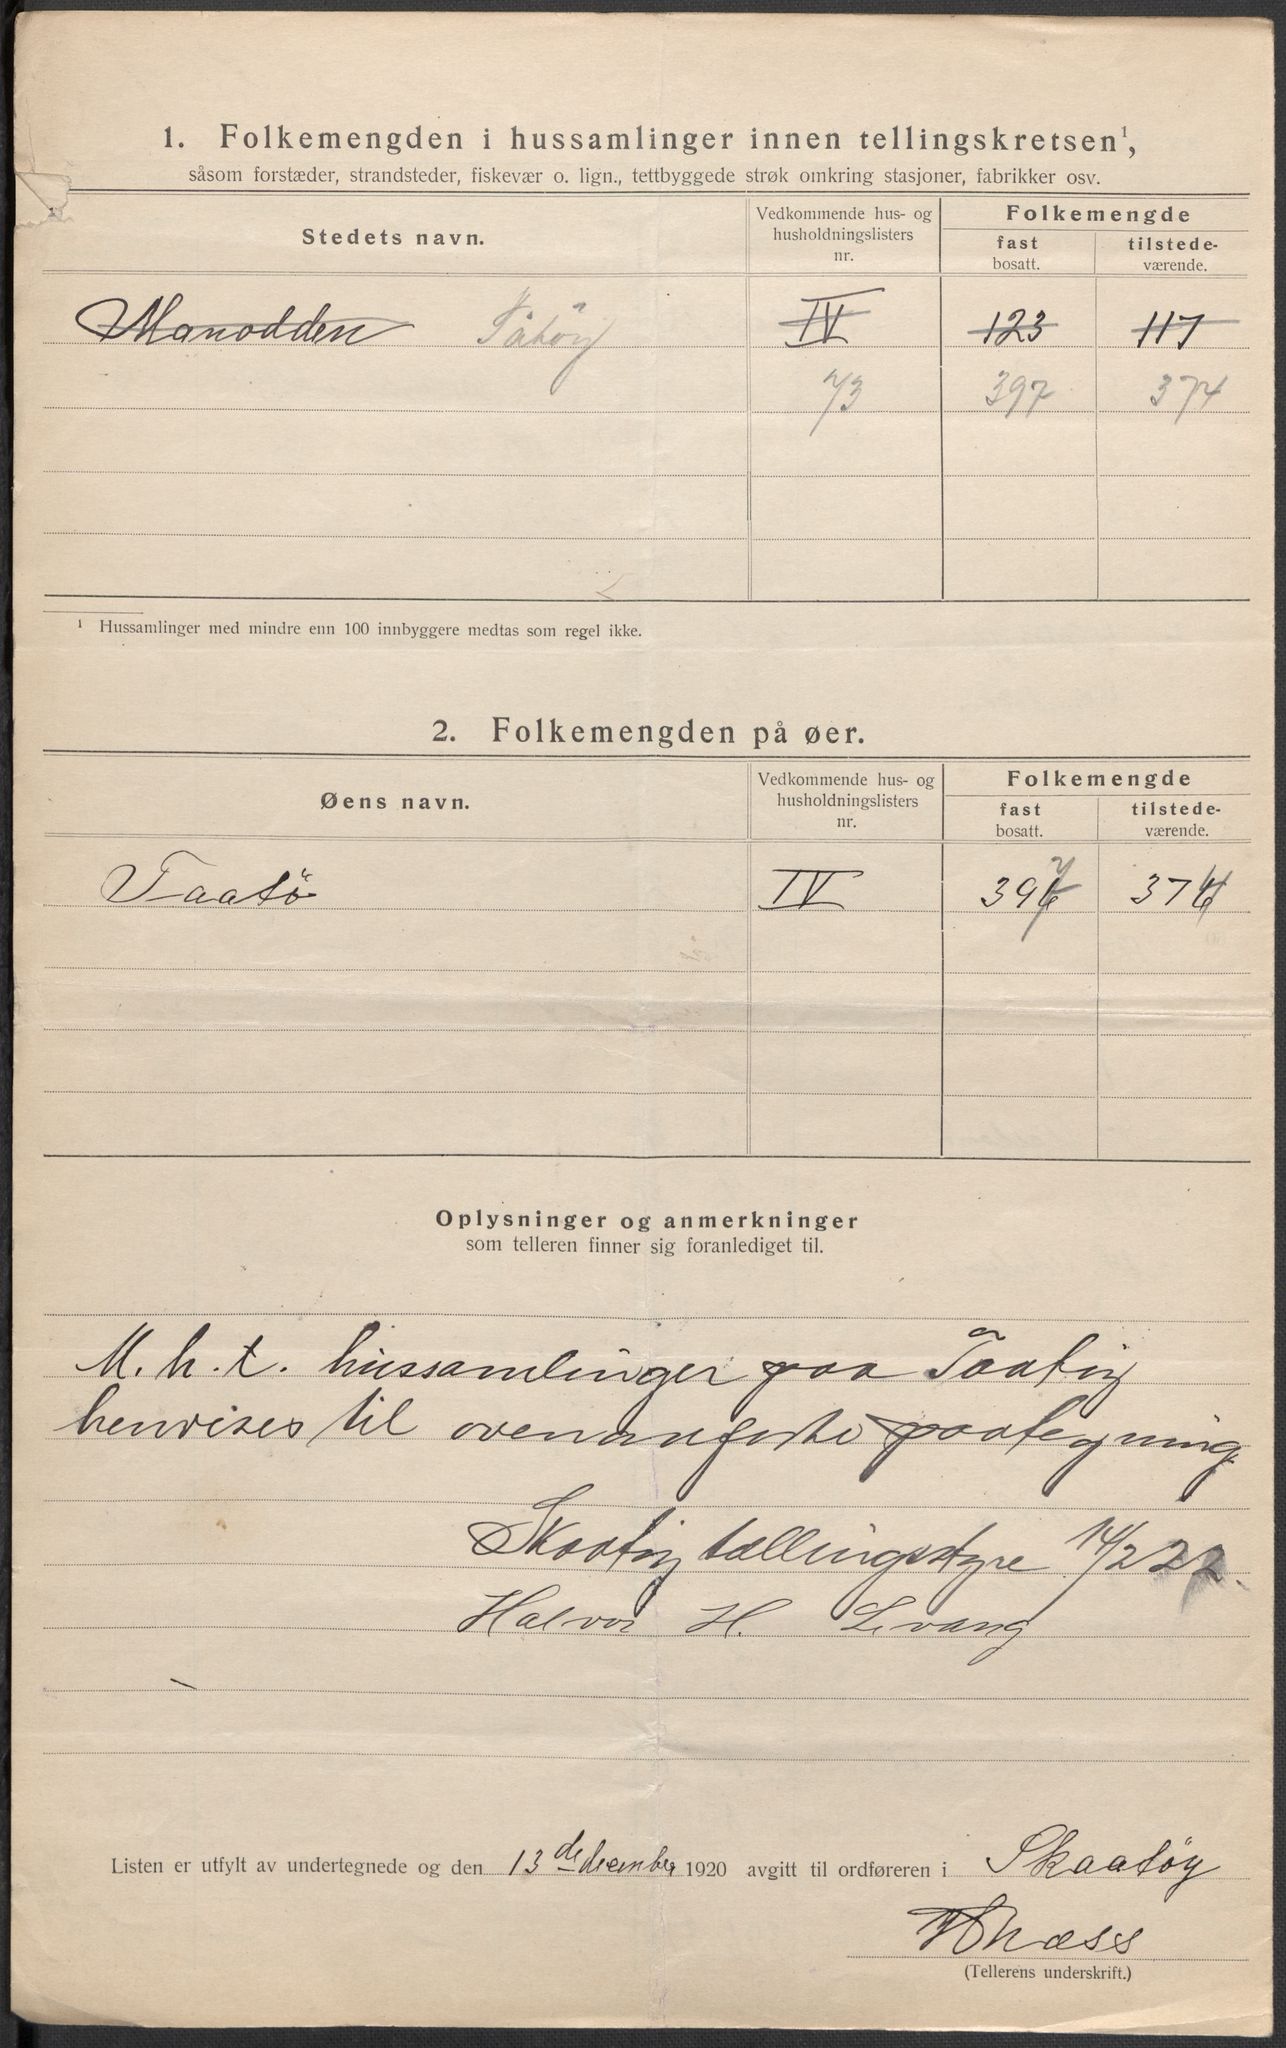 1. Folkemengden i hussamlinger innen tellingskretsen¹,
såsom forstæder, strandsteder, fiskevær o. lign., tettbyggede strøk omkring stasjoner, fabrikker osv.
Stedets navn.
Vedkommende hus- og husholdningslisters nr.
Folkemengde
fast bosatt.
tilstede-værende.
Manodden Tåtöy IV 123 117
73 397 374
¹ Hussamlinger med mindre enn 100 innbyggere medtas som regel ikke.
2. Folkemengden på øer.
Øens navn.
Vedkommende hus- og husholdningslisters nr.
Folkemengde
fast bosatt.
tilstede-værende.
Taatö IV 397 374
Oplysninger og anmerkninger
som telleren finner sig foranlediget til.
M. h. t. hussamlinger paa Taatøy
henvises til ovenanførte paategning
Skaatøy tællingsstyre 14/2 22.
Halvor H. Levang
Listen er utfylt av undertegnede og den 13de december 1920 avgitt til ordføreren i Skaatöy
(Tellerens underskrift.)